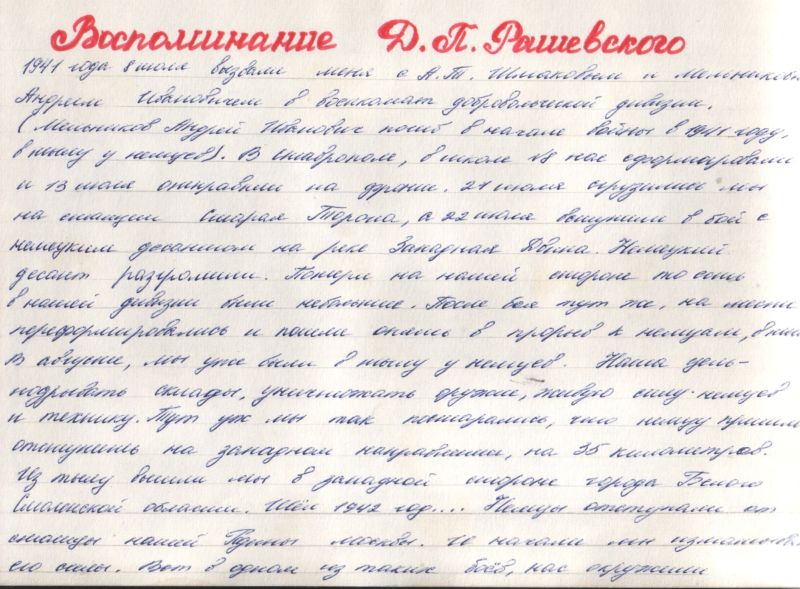 Воспоминание Д.П.Рашевского
1941 года 8 июля вызвали меня с А.Т. Шмаковым и Мельников
Андреем Ивановичем в военкомат добровольческой дивизии.
(Мельников Андрей Иванович погиб в начале войны в 1941 году,
в тылу у немцев). В Ставрополе, в школе №8 нас сформировали
и 13 июля отправили на фронт. 21 июля сгрузились мы
на станции Старая Торопа, а 22 июля вступили в бой с
немецким десантом на реке Западная Двина. Немецкий
десант разгромили. Потери на нашей стороне то есть
в нашей дивизии были небольшие. После боя тут же, на месте
переформировались и пошли опять в прорыв к немцам, в тыл
В августе, мы уже были в тылу у немцев. Наша цель-
подрывать склады, уничтожать оружие, живую силу немцев
и технику. Тут уж мы так постарались, что немцу пришл
отступить на западном направлении, на 35 километров.
Из тылу вышли мы в западной стороне города Белого
Смоленской области. Шёл 1942 год.... Немцы отступали от
столицы нашей Родины Москвы. И начали мы изматыва
его силы. Вот в одном из таких боёв, нас окружили